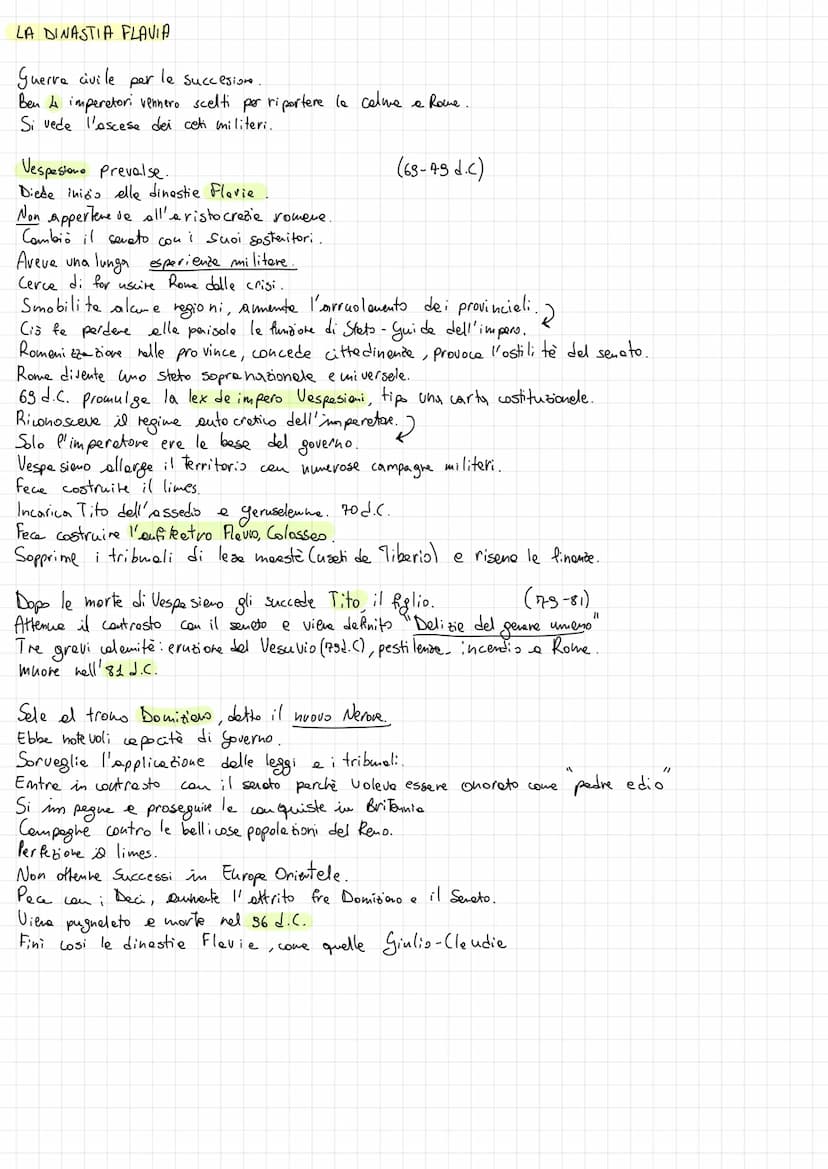 LA DINASTIA FLAVIA
Guerra civile per la succesione.
Ben 4 imperatori vennero scelti per riportare la calma a Roma.
Si vede l'ascesa dei ceti militari.
Vespasiano Prevalse. (69-79 d.C)
Diede inizio alla dinastia Flavia.
Non apparteneva all'aristocrazia romana.
Cambiò il senato con i suoi sostenitori.
Aveva una lunga esperienza militare.
Cerca di far uscire Roma dalla crisi.
Smobilita alcune regioni, aumenta l'arruolamento dei provinciali.
Ciò fa perdere alla penisola la funzione di Stato-Guida dell'impero.
Romanizzazione nelle province, concede cittadinanza, provoca l'ostilità del senato.
Roma diventa uno stato sopranazionale e universale.
69 d.C. promulga la lex de impero Vespasiani, tipo una carta costituzionale.
Riconosceva il regime autocratico dell'imperatore.
Solo l'imperatore era la base del governo.
Vespasiano allarga il territorio con numerose campagne militari.
Fece costruire il limes.
Incarica Tito dell'assedio a Gerusalemme. 70 d.C.
Fece costruire l'anfiteatro Flavio, Colosseo.
Sopprime i tribunali di lesa maestà (usati da Tiberio) e risana le finanze.
Dopo la morte di Vespasiano gli succede Tito, il figlio. (79-81)
Attenua il contrasto con il senato e viene definito "Delizia del genere umano"
Tre gravi calamità: eruzione del Vesuvio (79d.C), pestilenza, incendio a Roma.
muore nell'81 d.C.
Sale al trono Domiziano, detto il nuovo Nerone.
Ebbe notevoli capacità di governo.
Sorveglia l'applicazione delle leggi e i tribunali.
Entra in contrasto con il senato perchè voleva essere onorato come "padre e dio"
Si impegna a proseguire le conquiste in Britannia
Campagne contro le bellicose popolazioni del Reno.
Perfeziona il limes.
Non ottenne successi in Europa Orientale.
Pace con i Daci, aumenta l'attrito fra Domiziano e il Senato.
Viene pugnalato a morte nel 96 d.C.
Finì così la dinastia Flavia, come quella Giulio-Claudia